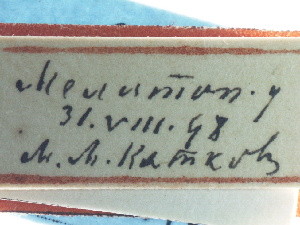 Мелитоп. у
31.VIII.48
М.М.Катков